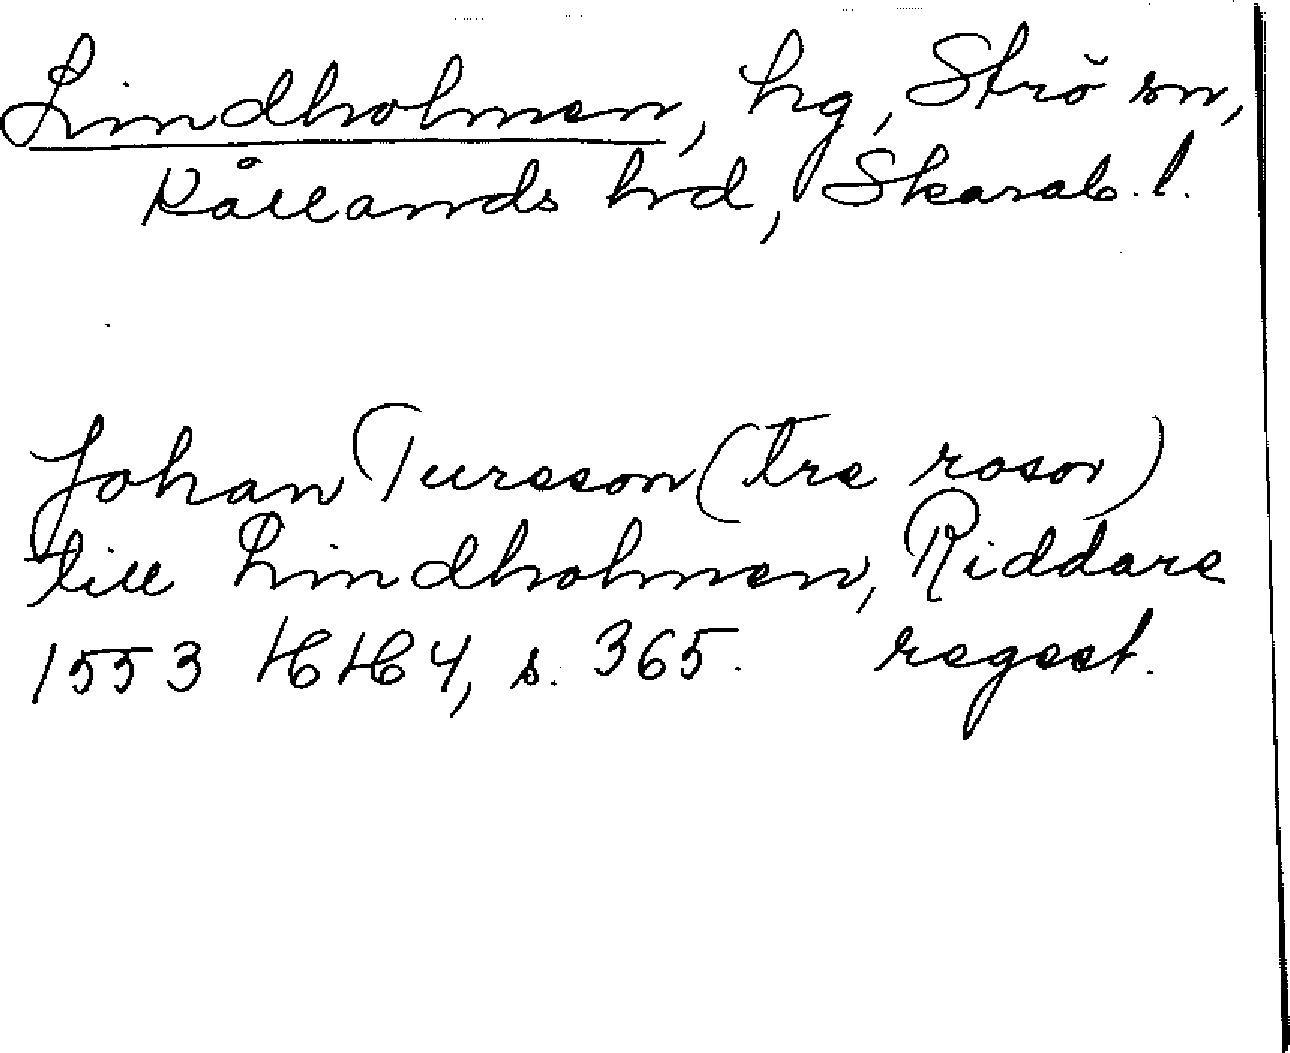 Lindholmen, hg, Strö sn,
Kållands hrd, Skarab. l.
Johan Tursson (tre rosor)
till Lindholmen, Riddare
1553 HH 4, s. 365. regest.